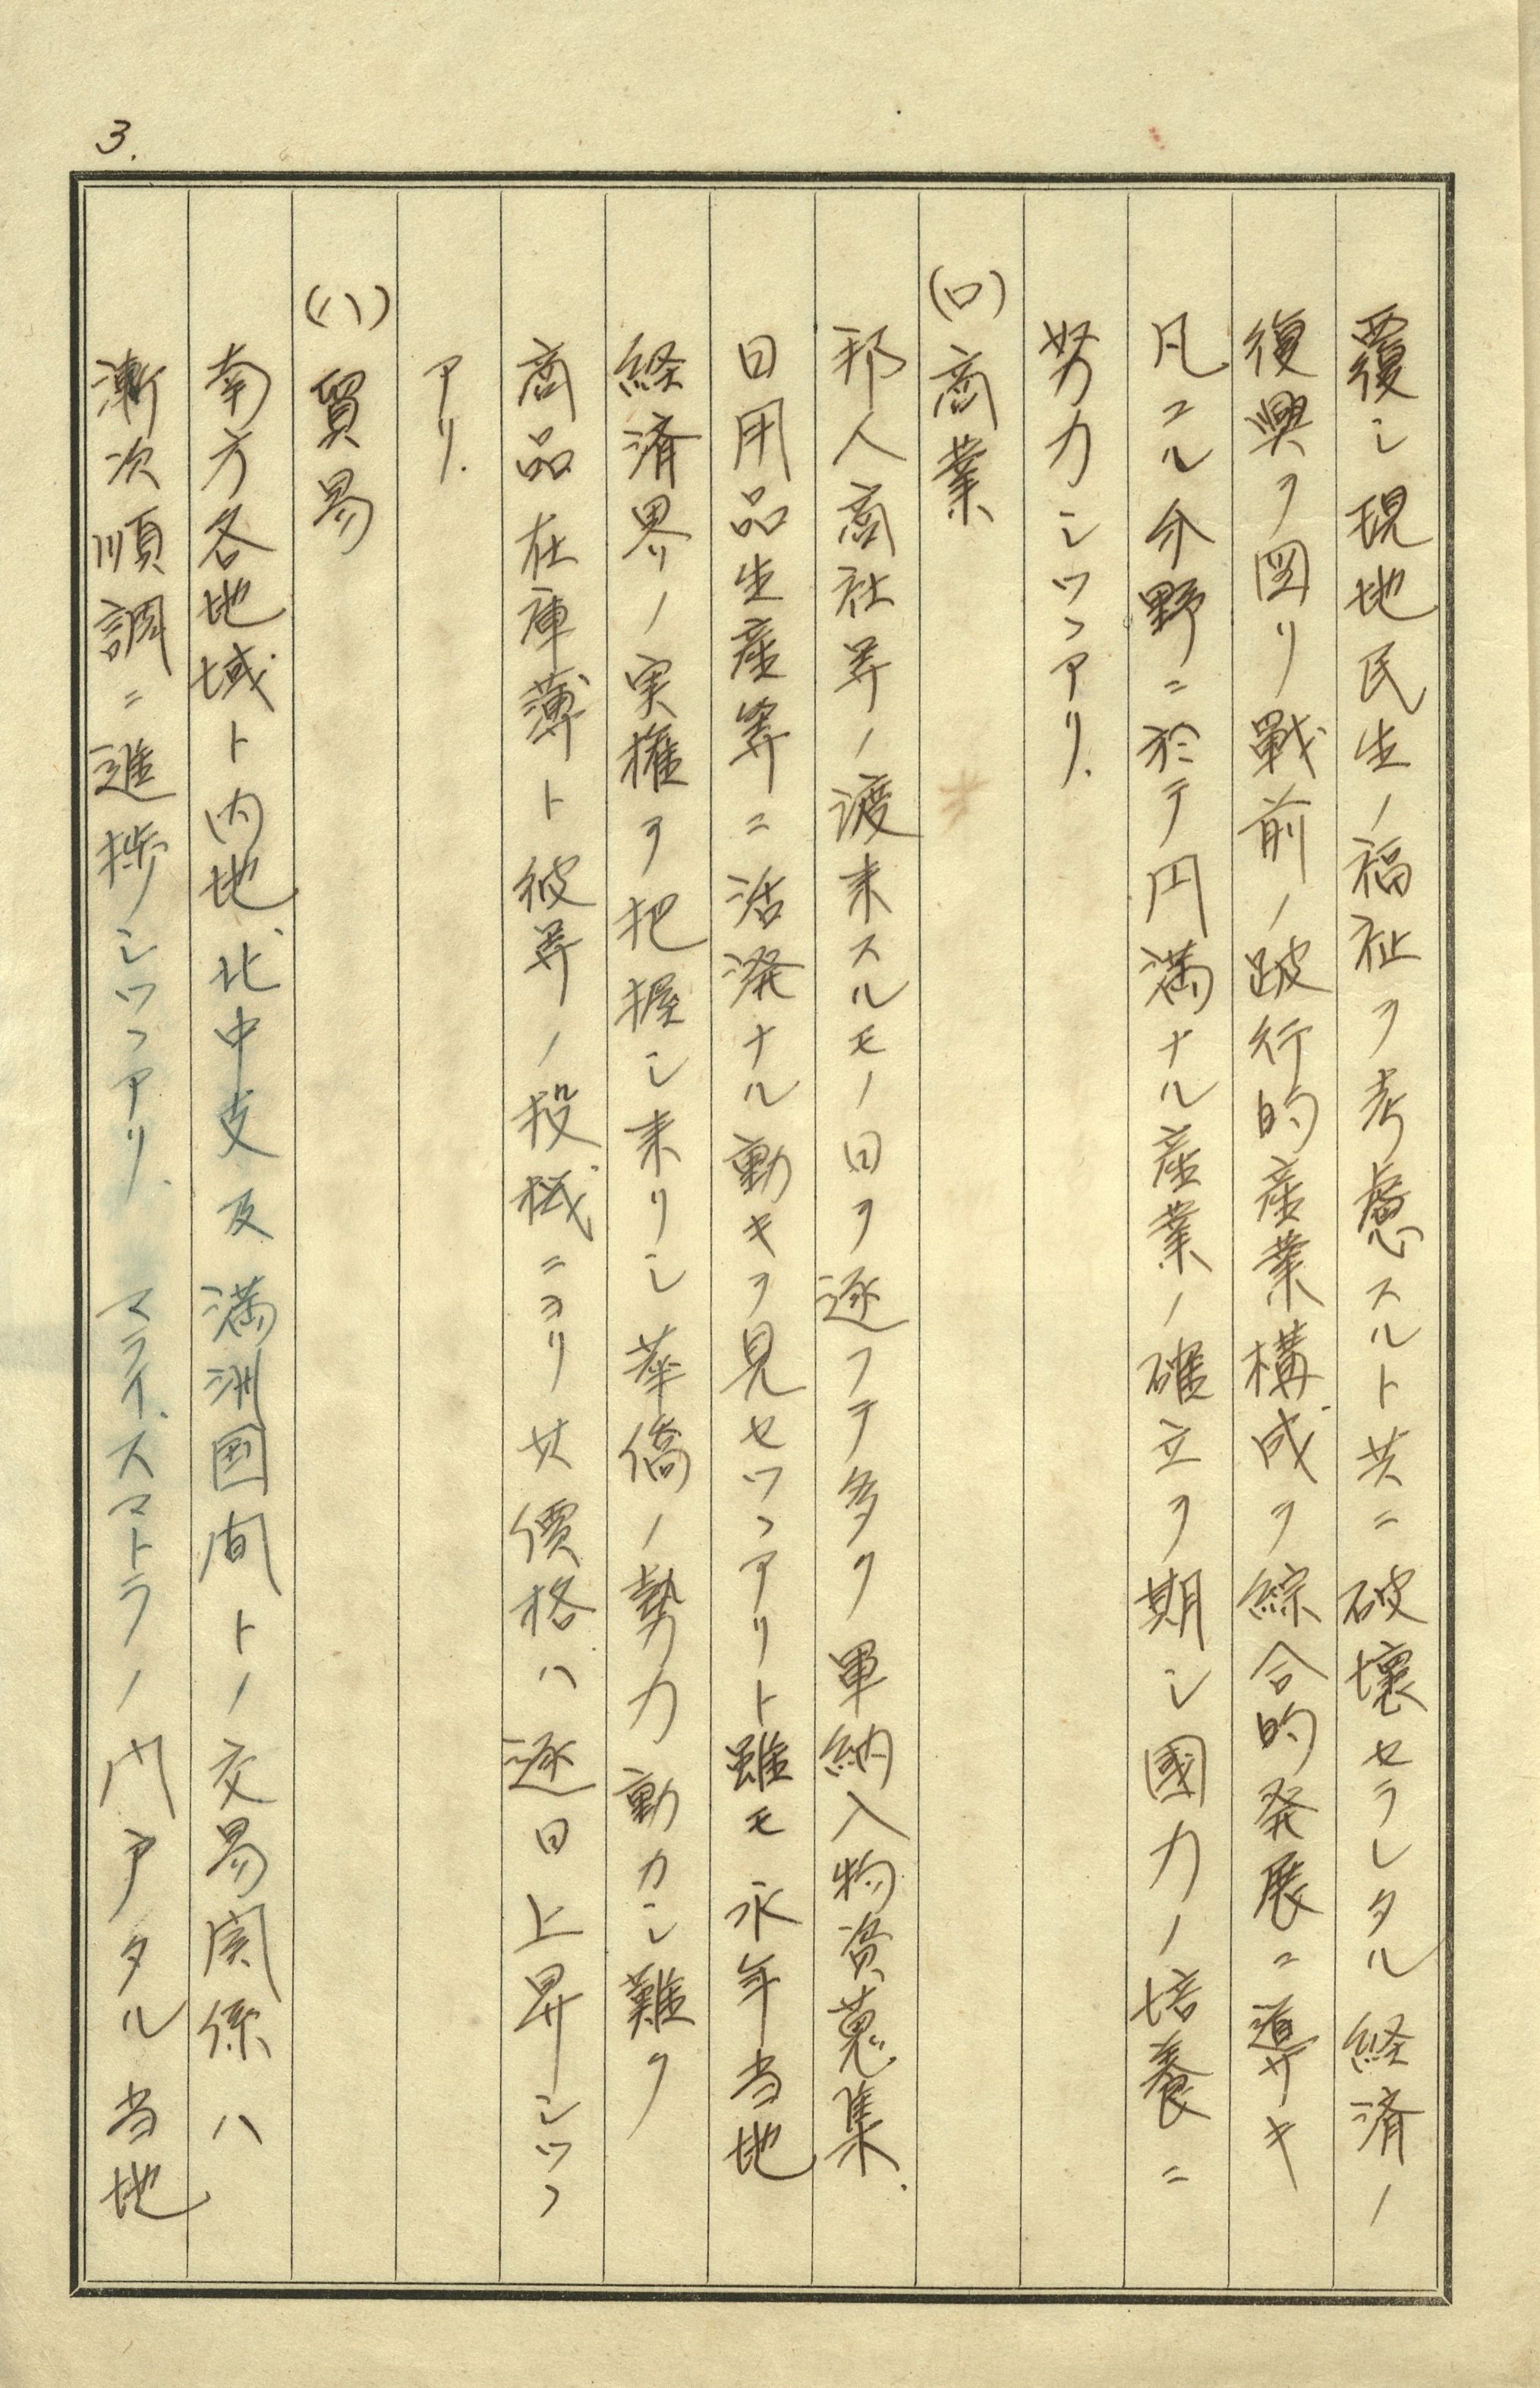 3.
覆シ現地民生ノ福祉ヲ考慮スルト共ニ破壊セラレタル経済ノ
復興ヲ図リ戰前ノ跛行的産業構成ヲ綜合的発展ニ導キ
凡ユル分野ニ於テ円満ナル産業ノ確立ヲ期シ國力ノ培養ニ
努力シツツアリ.
(ロ)商業
邦人商社等ノ渡来スルモノ日ヲ逐フテ多ク軍納入物資蒐集.
日用品生産等ニ活溌ナル動キヲ見セツツアリト雖モ永年当地
経済界ノ実権ヲ把握シ来リシ華僑ノ勢力動カシ難ク
商品在庫薄ト彼等ノ投機ニヨリ其價格ハ逐日上昇シツツ
アリ.
(ハ)貿易
南方各地域ト内地.北中支及満洲国間トノ交易関係ハ
漸次順調ニ進捗シツツアリ.マライ.スマトラノ門戸タル当地